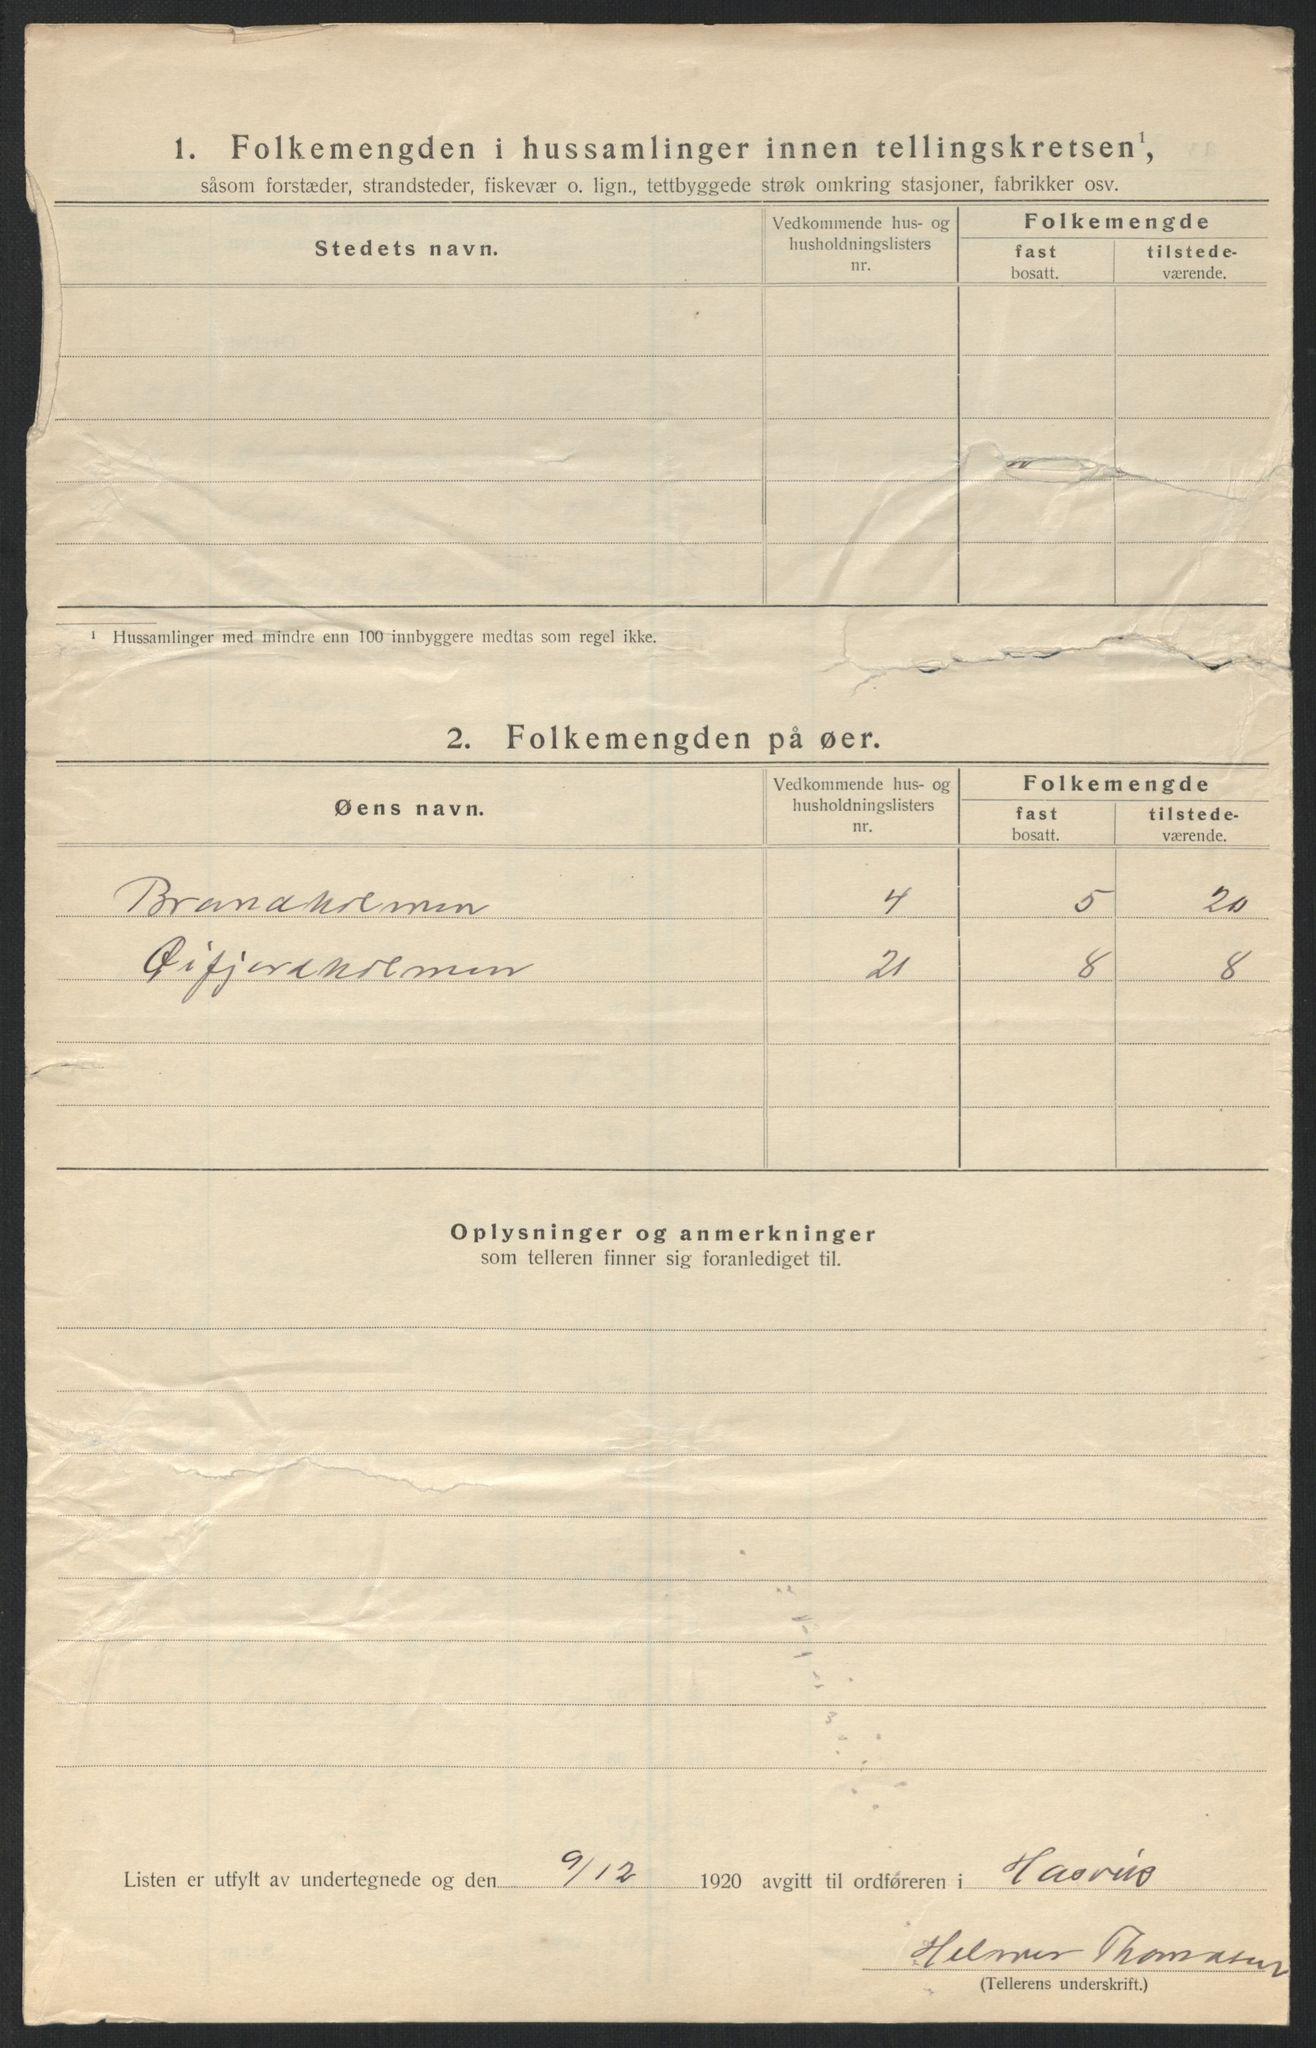 1. Folkemengden i hussamlinger innen tellingskretsen¹,
såsom forstæder, strandsteder, fiskevær o. lign., tettbyggede strøk omkring stasjoner, fabrikker osv.
Stedets navn.
Vedkommende hus- og
husholdningslisters
nr.
Folkemengde
fast
bosatt.
tilstede-
værende.
¹ Hussamlinger med mindre enn 100 innbyggere medtas som regel ikke.
2. Folkemengden på øer.
Øens navn.
Vedkommende hus- og
husholdningslisters
nr.
Folkemengde
fast
bosatt.
tilstede-
værende.
Brandholmen 4 5 20
Øifjordholmen 21 8 8
Oplysninger og anmerkninger
som telleren finner sig foranlediget til.
Listen er utfylt av undertegnede og den 9/12 1920 avgitt til ordføreren i Hasvig
Helmer Thomassen
(Tellerens underskrift.)